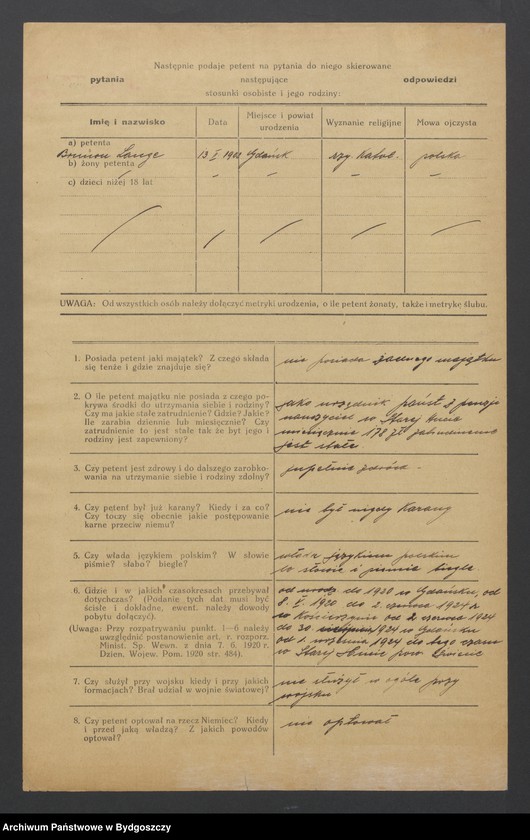 Następnie podaje petent na pytania do niego skierowane
pytania następujące odpowiedzi
stosunki osobiste i jego rodziny:
Imię i nazwisko Data Miejsce i powiat urodzenia Wyznanie religijne Mowa ojczysta
a) petenta
Lange 13 I 1902 Gdańsk rzy. Katol. polska
b) żony petenta
c) dzieci niżej 18 lat
UWAGA: Od wszystkich osób należy dołączyć metryki urodzenia, o ile petent żonaty, także i metrykę ślubu.
1. Posiada petent jaki majątek? Z czego składa
się tenże i gdzie znajduje się?
nie posiada żadnego majątku
2. O ile petent majątku nie posiada z czego po-
krywa środki do utrzymania siebie i rodziny?
Czy ma jakie stałe zatrudnienie? Gdzie? Jakie?
Ile zarabia dziennie lub miesięcznie? Czy
zatrudnienie to jest stałe tak że byt jego i
rodziny jest zapewniony?
jako urzędnik państ z pensją
nauczyciel w Starej
miesięcznie 170 zł. zatrudnienie
jest stałe
3. Czy petent jest zdrowy i do dalszego zarobko-
wania na utrzymanie siebie i rodziny zdolny?
zupełnie zdrów.
4. Czy petent był już karany? Kiedy i za co?
Czy toczy się obecnie jakie postępowanie
karne przeciw niemu?
nie był nigdy Karany
5. Czy włada językiem polskim? W słowie
piśmie? słabo? biegle?
włada językiem polskim
w słowie i piśmie biegle.
6. Gdzie i w jakich czasokresach przebywał
dotychczas? (Podanie tych dat musi być
ściśle i dokładne, ewent. należy dowody
pobytu dołączyć).
(Uwaga: Przy rozpatrywaniu punkt. 1—6 należy
uwzględnić postanowienie art. r. rozporz.
Minist. Sp. Wewn. z dnia 7. 6. 1920 r.
Dzien. Wojew. Pom. 1920 str. 484).
od urodz do 1920 w Gdańsku, od
8. V. 1920 do 2. czerwca 1924 r
w Kościerzynie od 2 czerwca 1924
do 30 1924 w Gdańsku
od 1. września 1924 do tego czasu
w Starej pow.
7. Czy służył przy wojsku kiedy i przy jakich
formacjach? Brał udział w wojnie światowej?
nie służył w ogóle przy
wojsku
8. Czy petent optował na rzecz Niemiec? Kiedy
i przed jaką władzą? Z jakich powodów
optował?
nie optował
Archiwum Państwowe w Bydgoszczy